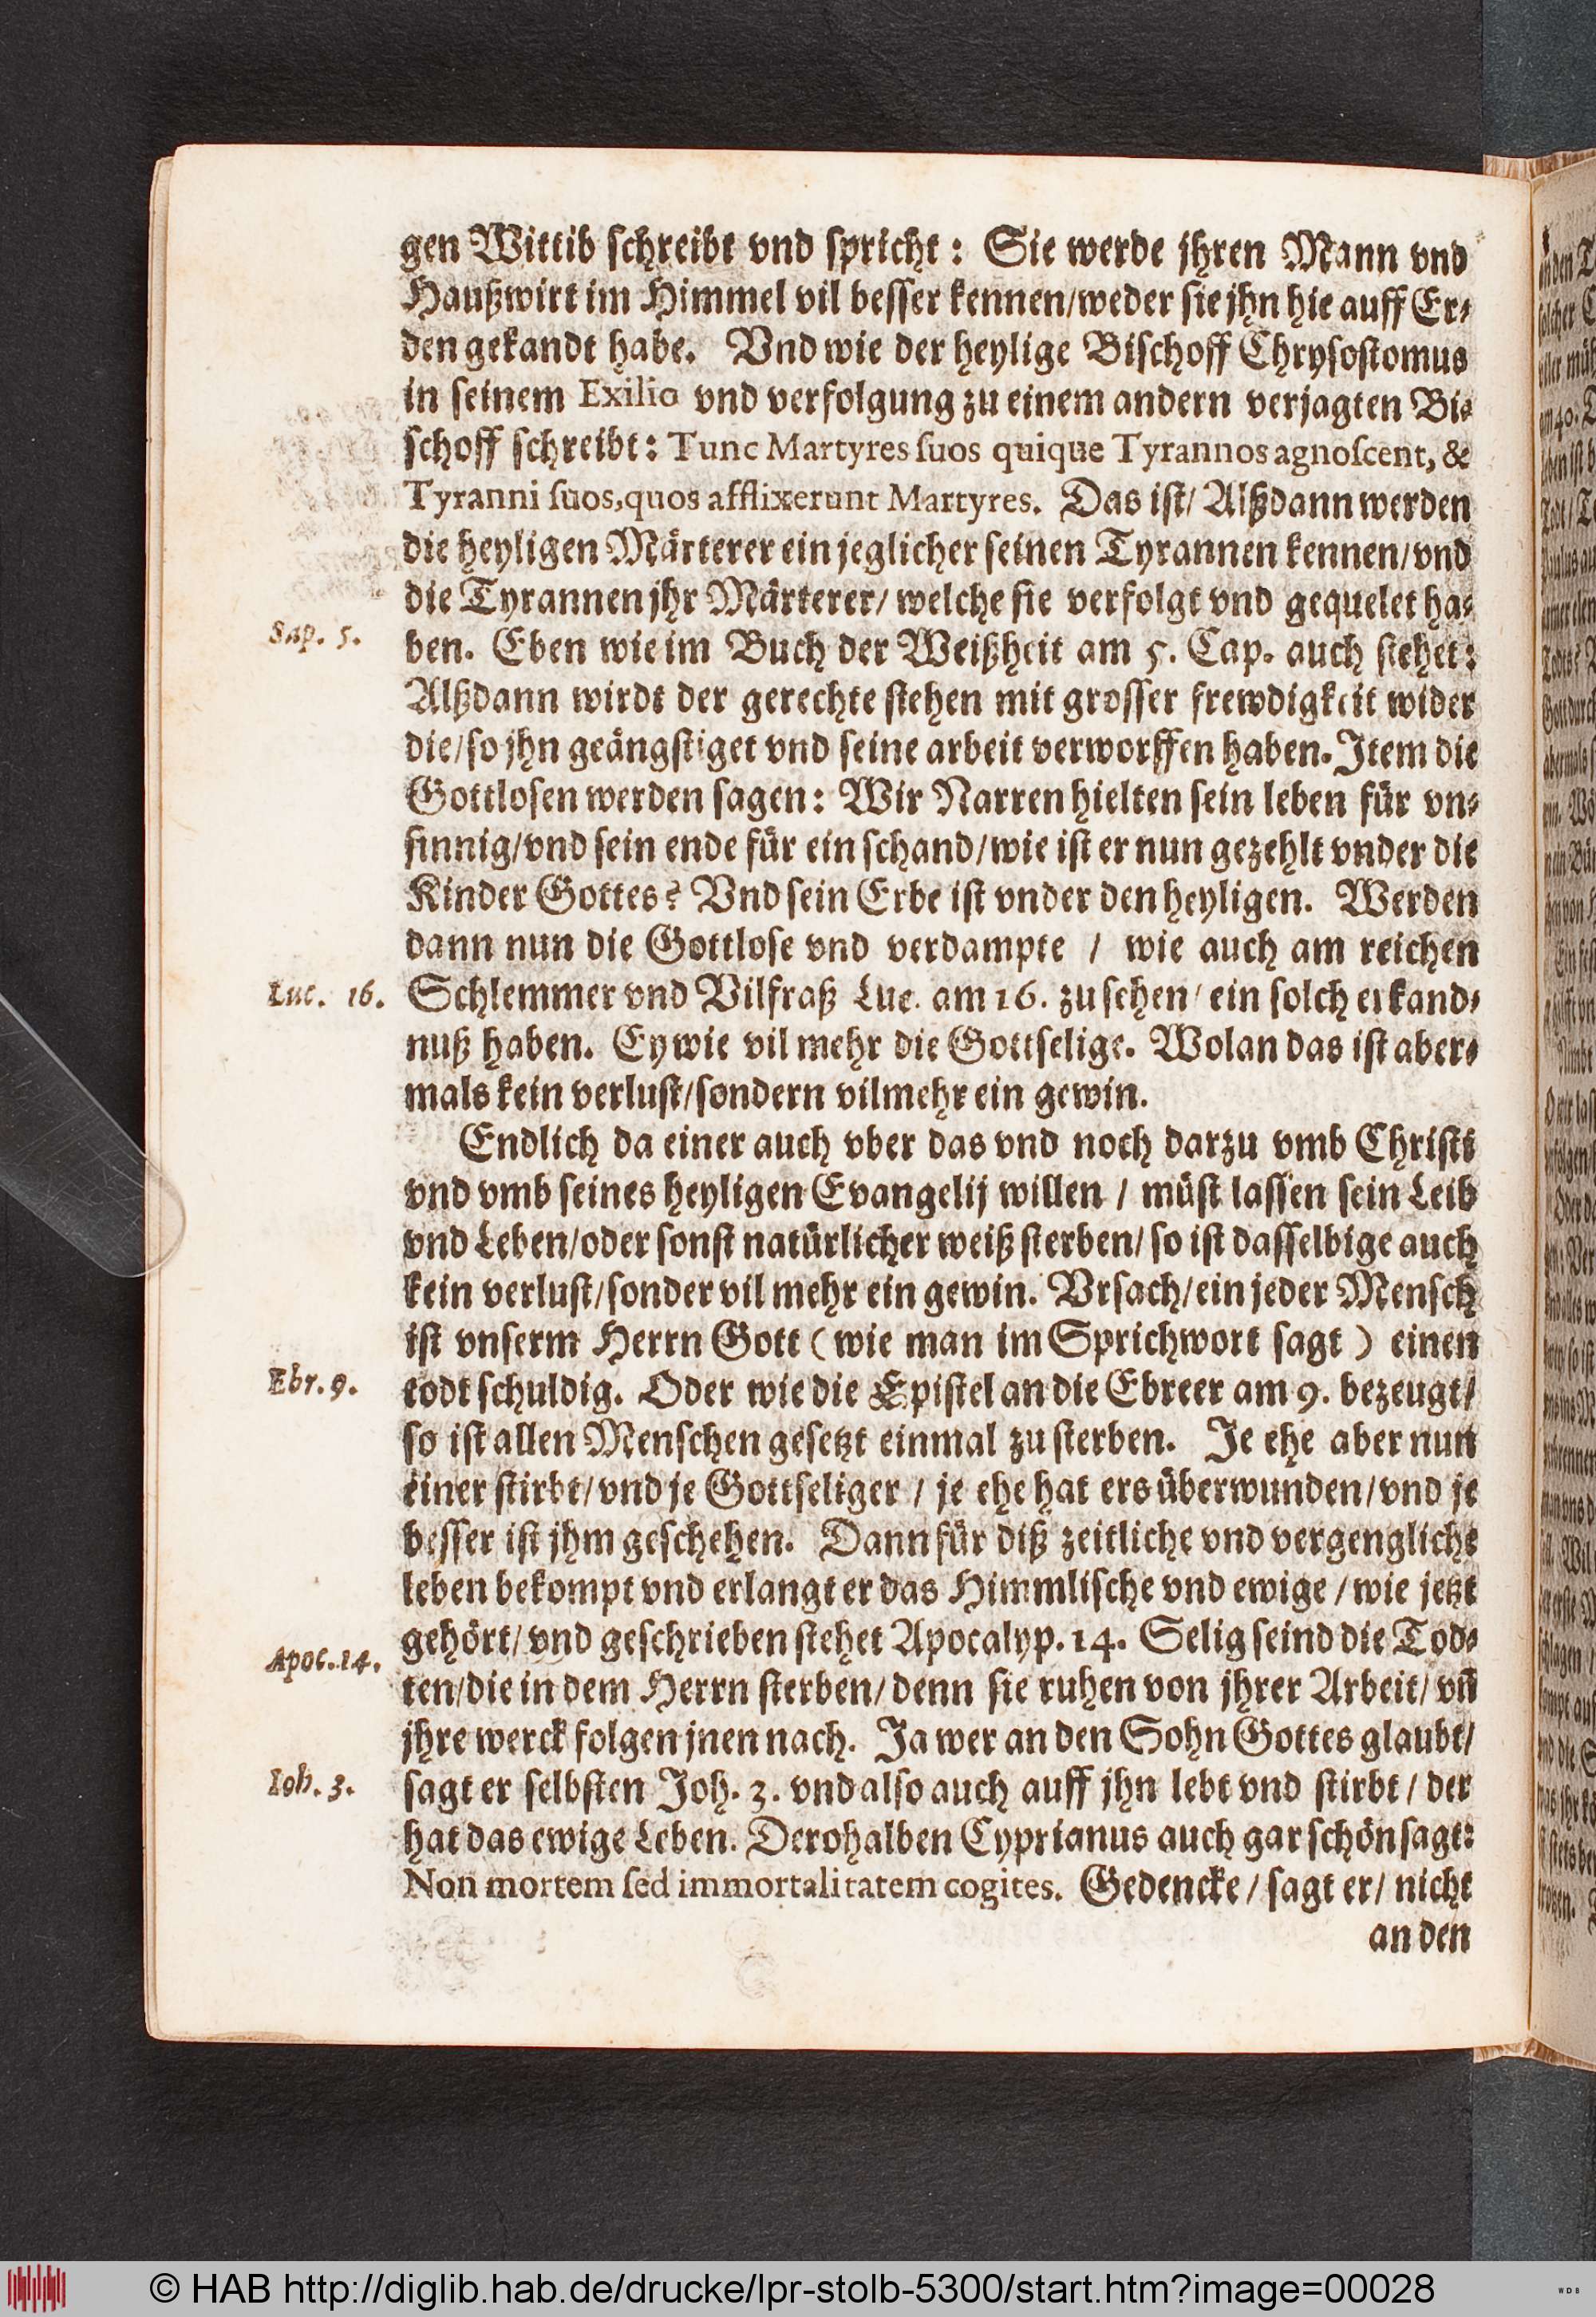 gen Wittib schreibt vnd spricht: Sie werde jhren Mann vnd
Haußwirt im Himmel vil besser kennen/weder sie jhn hie auff Er⸗
den gekandt habe. Vnd wie der heylige Bischoff Chrysostomus
in seinem Exilio vnd verfolgung zu einem andern verjagten Bi⸗
schoff schreibt: Tunc Martyres ſuos quique Tyrannos agnoſcent, &
Tyranni ſuos, quos afflixerunt Martyres. Das ist/ Alßdann werden
die heyligen Märterer ein jeglicher seinen Tyrannen kennen/vnd
die Tyrannen jhr Märterer/ welche sie verfolgt vnd gequelet ha⸗
Sap. 5. ben. Eben wie im Buch der Weißheit am 5. Cap. auch stehet:
Alßdann wirdt der gerechte stehen mit grosser frewdigkeit wider
die/so jhn geängstiget vnd seine arbeit verworffen haben. Item die
Gottlosen werden sagen: Wir Narren hielten sein leben für vn⸗
sinnig/vnd sein ende für ein schand/wie ist er nun gezehlt vnder die
Kinder Gottes? Vnd sein Erbe ist vnder den heyligen. Werden
dann nun die Gottlose vnd verdampte / wie auch am reichen
Luc. 16. Schlemmer vnd Vilfraß Luc. am 16. zu sehen/ ein solch erkand⸗
nuß haben. Ey wie vil mehr die Gottselige. Wolan das ist aber⸗
mals kein verlust/sondern vilmehr ein gewin.
Endlich da einer auch vber das vnd noch darzu vmb Christi
vnd vmb seines heyligen Evangelij willen / müst lassen sein Leib
vnd Leben/oder sonst natürlicher weiß sterben/ so ist dasselbige auch
kein verlust/sonder vil mehr ein gewin. Vrsach/ein jeder Mensch
ist vnserm Herrn Gott (wie man im Sprichwort sagt) einen
Ebr. 9. todt schuldig. Oder wie die Epistel an die Ebreer am 9. bezeugt/
so ist allen Menschen gesetzt einmal zu sterben. Je ehe aber nun
einer stirbt/vnd je Gottseliger / je ehe hat ers überwunden/vnd je
besser ist jhm geschehen. Dann für diß zeitliche vnd vergengliche
leben bekompt vnd erlangt er das Himmlische vnd ewige /wie jetzt
Apoc. 14. gehört/ vnd geschrieben stehet Apocalyp. 14. Selig seind die Tod⸗
ten/die in dem Herrn sterben/ denn sie ruhen von jhrer Arbeit/ vñ
jhre werck folgen jnen nach. Ja wer an den Sohn Gottes glaubt/
Ioh. 3. sagt er selbsten Joh. 3. vnd also auch auff jhn lebt vnd stirbt / der
hat das ewige Leben. Derohalben Cyprianus auch gar schön sagt:
Non mortem ſed immortalitatem cogites. Gedencke / sagt er/ nicht
an den
© HAB http://diglib.hab.de/drucke/lpr-stolb-5300/start.htm?image=00028
WDB